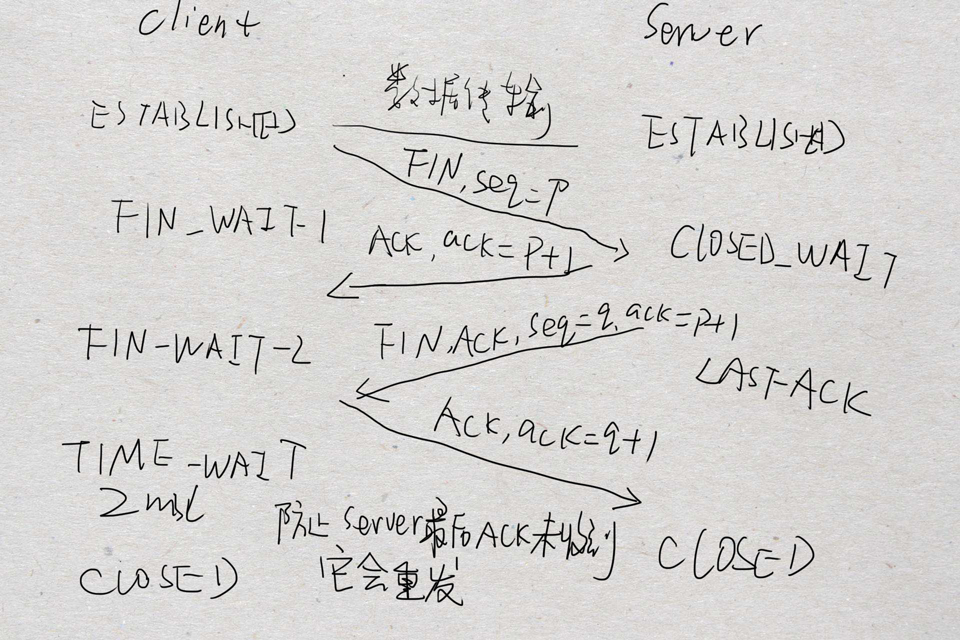 Client
Server
数据传输
ESTABLISHED
ESTABLISHED
FIN, seq=P
FIN_WAIT-1
ACK, ack=P+1
CLOSED_WAIT
FIN,ACK, seq=q, ack=p+1
FIN-WAIT-2
LAST-ACK
ACK, ack=q+1
TIME-WAIT
2msl
防止 Server最后ACK未收到
它会重发
CLOSED
CLOSED